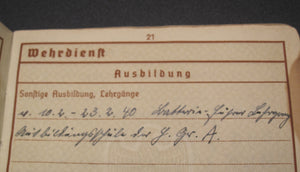 21
Wehrdienst
Ausbildung
Sonstige Ausbildung, Lehrgänge
v. 10.2.-23.2.40 Batterie-Führer Lehrgang
Ausbildungsschule der H. Gr. A.